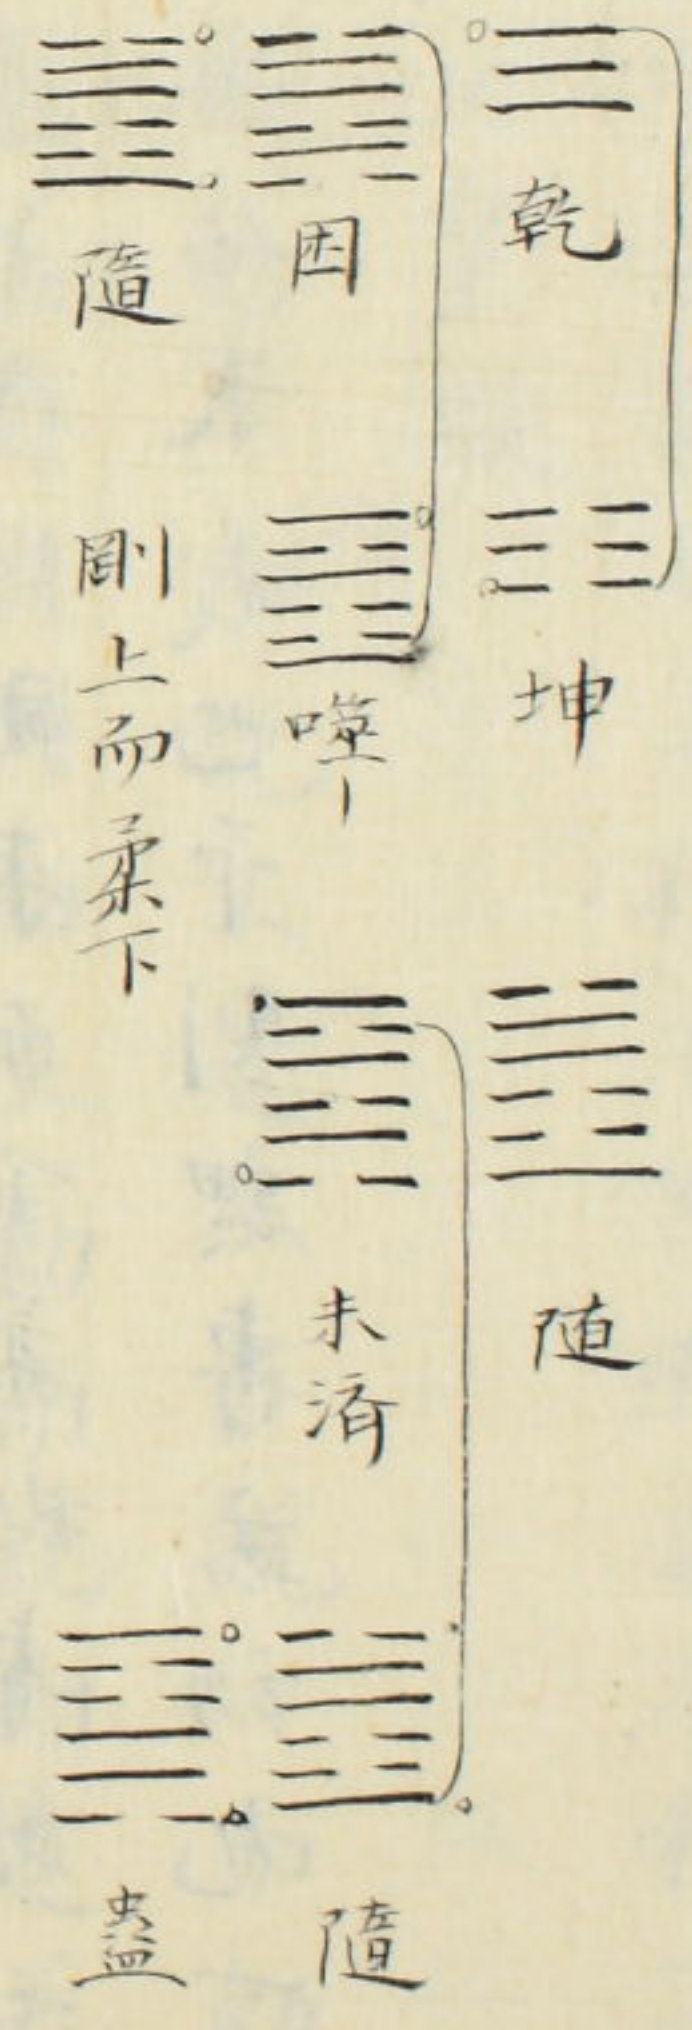 乾
坤
随
困
噬〡
未済
隨
隨
剛上而柔下
蠱